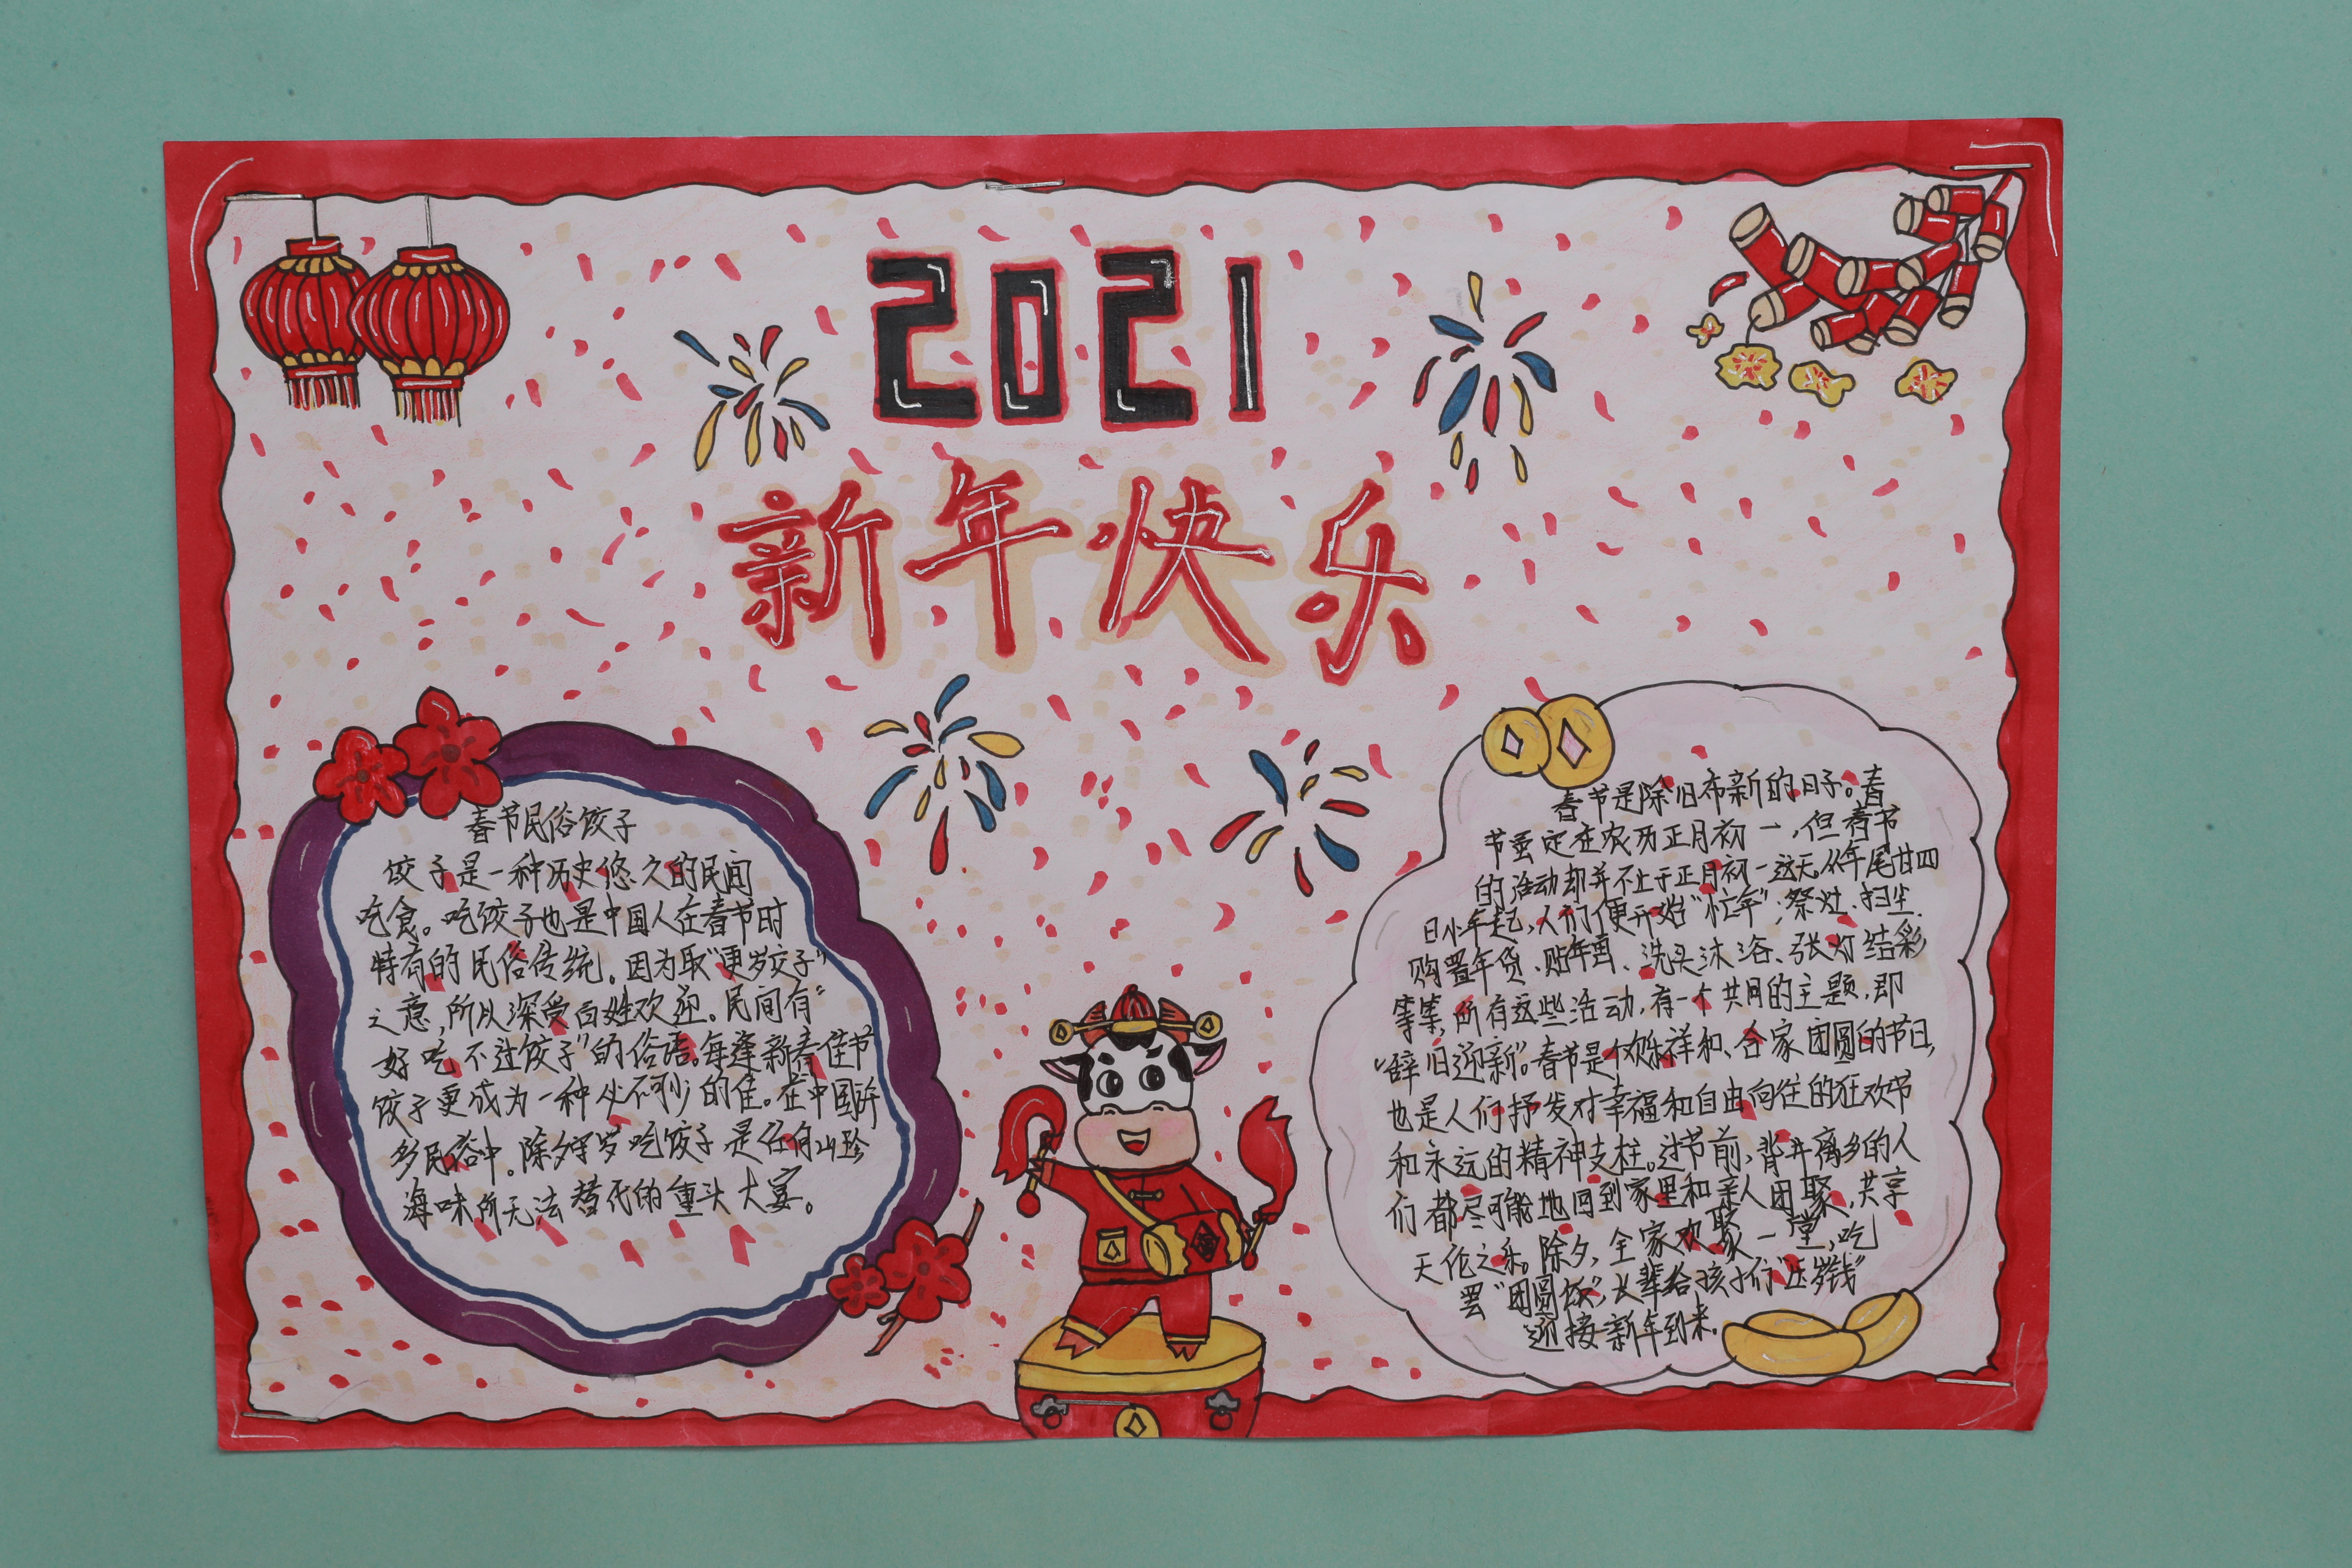 2021
新年快乐
春节民俗饺子
饺子是一种历史悠久的民间
吃食。吃饺子也是中国人在春节时
特有的民俗传统。因为取“更岁交子”
之意,所以深受百姓欢迎。民间有“
好吃不过饺子”的俗语。每逢新春佳节
饺子更成为一种必不可少的佳。在中国许
多民俗中。除夕守岁吃饺子是任何山珍
海味所无法替代的重头大宴。
春节是除旧布新的日子。春
节虽定在农历正月初一,但春节
的活动却并不止于正月初一这天,从年尾廿四
日小年起,人们便开始“忙年”;祭灶、扫尘、
购置年货、贴年画、洗头沐浴、张灯结彩
等等,所有这些活动,有一个共同的主题,即
“辞旧迎新”。春节是个欢乐祥和、合家团圆的节日,
也是人们抒发对幸福和自由向往的狂欢节
和永远的精神支柱。过节前,背井离乡的人
们都尽可能地回到家里和亲人团聚,共享
天伦之乐。除夕,全家欢聚一堂,吃
罢“团圆饭”,长辈给孩子们“压岁钱”
迎接新年到来.